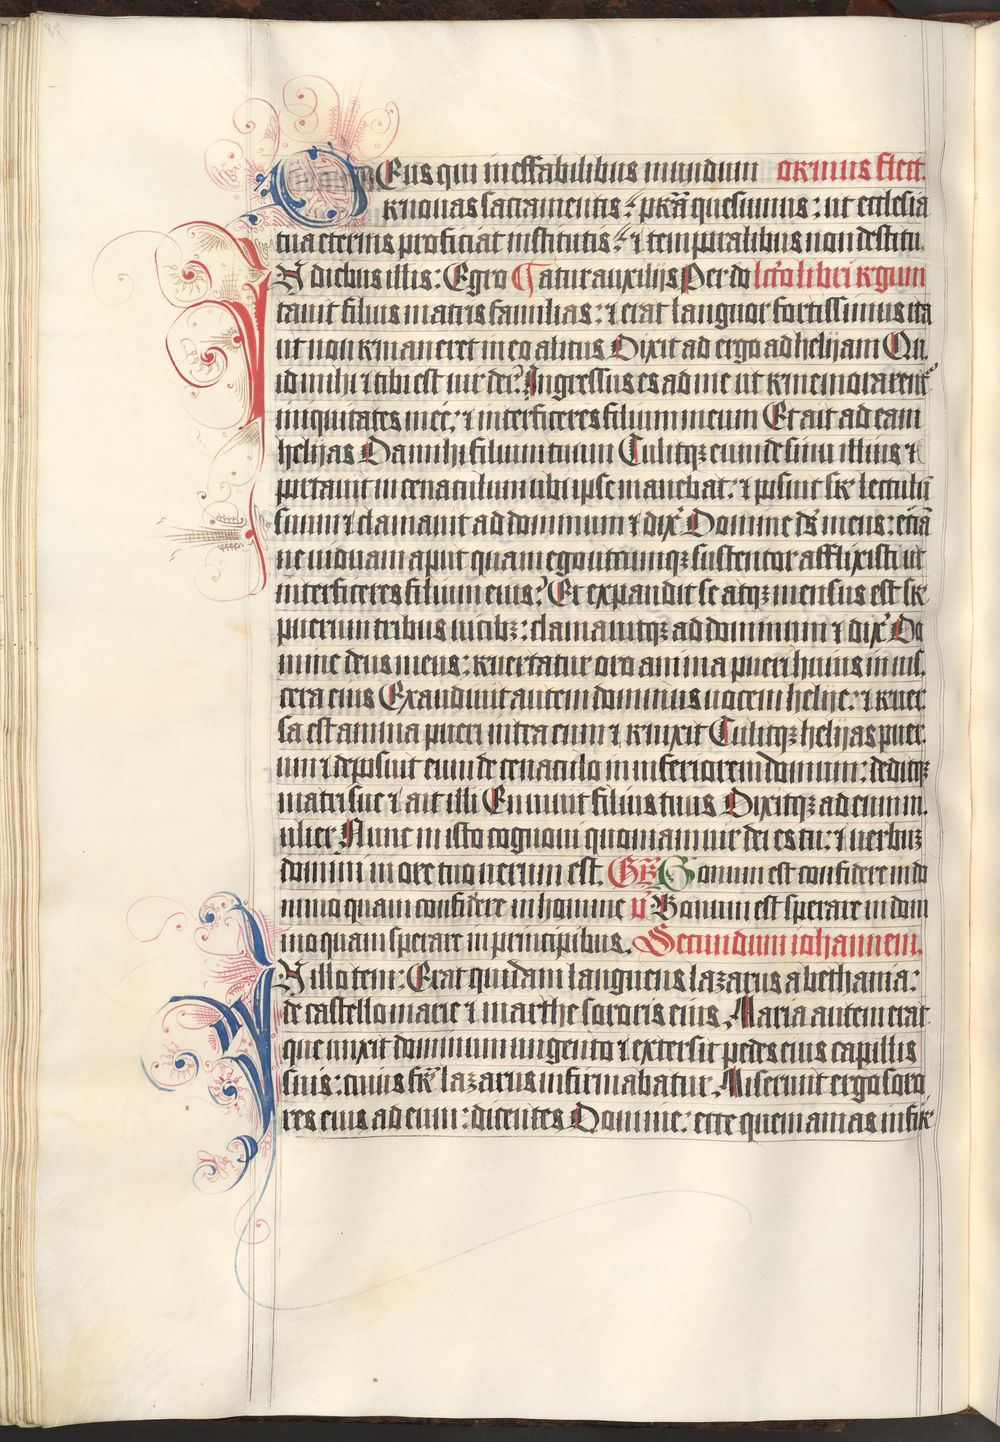 DEus qui ineffabilibus mundum oremus flect.
renouas sacramentis: pr̄a quesumus: ut ecclesia
tua eternis proficiat institutis: ⁊ temporalibus non destitu.
N diebus illis: Egro Tatur auxilijs Per do lc̄o libri regum
tauit filius matris familias: ⁊ erat languor fortissimus ita
ut non remaneret in eo alitus Dixit ad ergo ad helijam Qu.
id mihi ⁊ tibi est uir dei? Ingressus es ad me ut rememorarent᷑
iniquitates mee: ⁊ interficeres filium meum Et ait ad eam
helijas Da mihi filium tuum Tulitqꝫ eum de sinu illius ⁊
portauit in cenaculum ubi ipse manebat: ⁊ posuit sr̄ lectulū
suum ⁊ clamauit ad dominum ⁊ dix̄ Domine ds̄ meus: etiā
ne uiduam aput quam ego utcumqꝫ sustentor afflixisti ut
interficeres filium eius? Et expandit se atqꝫ mensus est sr̄
puerum tribus uicibꝫ: clamauitqꝫ ad dominum ⁊ dix̄ Do
mine deus meus: reuertatur oro anima pueri huius in uis.
cera eius Exaudiuit autem dominus uocem helije: ⁊ reuer.
sa est anima pueri intra eum ⁊ reuixit Tulitqꝫ helijas puer.
um ⁊ deposuit eum de cenaculo in inferiorem domum: deditqꝫ
matri sue ⁊ ait illi En uiuit filius tuus Dixitqꝫ ad eum m.
ulier Nunc in isto cognoui quoniam uir dei es tu: ⁊ uerbuꝫ
domini in ore tuo uerum est. GR̄ Bonum est confidere in do
mino quam confidere in homine v̄ Bonum est sperare in dom
ino quam sperare in principibus. Secundum iohannem.
N illo tem: Erat quidam languens lazarus a bethania:
de castello marie ⁊ marthe sororis eius. Maria autem erat
que unxit dominum ungento ⁊ extersit pedes eius capillis
suis: cuius fr̄ lazarus infirmabatur. Miserunt ergo soro
res eius ad eum: dicentes Domine: ecce quem amas infir̄